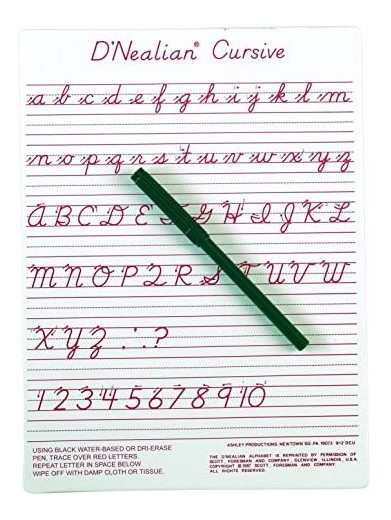 D'Nealian® Cursive
a b c d e f g h i j k l m
n o p q r s t u v w x y z
A B C D E F G H I J K L
M N O P Q R S T U V W
X Y Z . , . ?
1 2 3 4 5 6 7 8 9 10
USING BLACK WATER-BASED OR DRI-ERASE
PEN, TRACE OVER RED LETTERS.
REPEAT LETTER IN SPACE BELOW
WIPE OFF WITH DAMP CLOTH OR TISSUE.
ASHLEY PRODUCTIONS NEWTOWN SQ. PA 19073 912 DCU
THE D'NEALIAN ALPHABET IS REPRINTED BY PERMISSION OF
SCOTT, FORESMAN AND COMPANY, GLENVIEW, ILLINOIS, U.S.A.
COPYRIGHT © 1987 SCOTT, FORESMAN AND COMPANY.
ALL RIGHTS RESERVED.